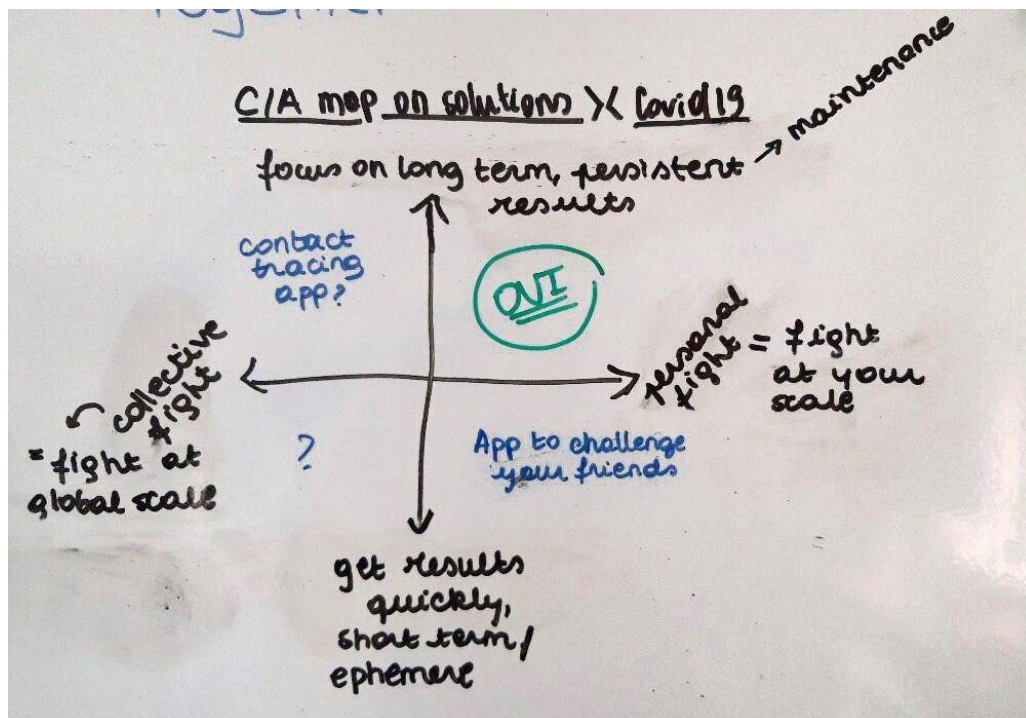 Together
C/A map on solutions >< Covid19
focus on long term, persistent
results
→ maintenance
contact
tracing
app?
OVI
collective
fight
= fight at
global scale
personal
fight
= fight
at your
scale
?
App to challenge
your friends
get results
quickly,
short term/
ephemere